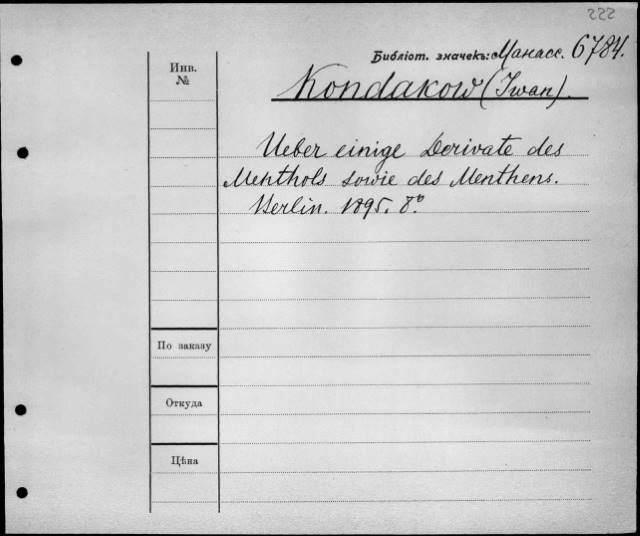 222
Библіот. значекъ: Манасс. 6784.
Инв.
№
Kondakow (Iwan).
Ueber einige Derivate des
Menthols sowie des Menthens.
Berlin. 1895. 8°.
По заказу
Откуда
Цѣна